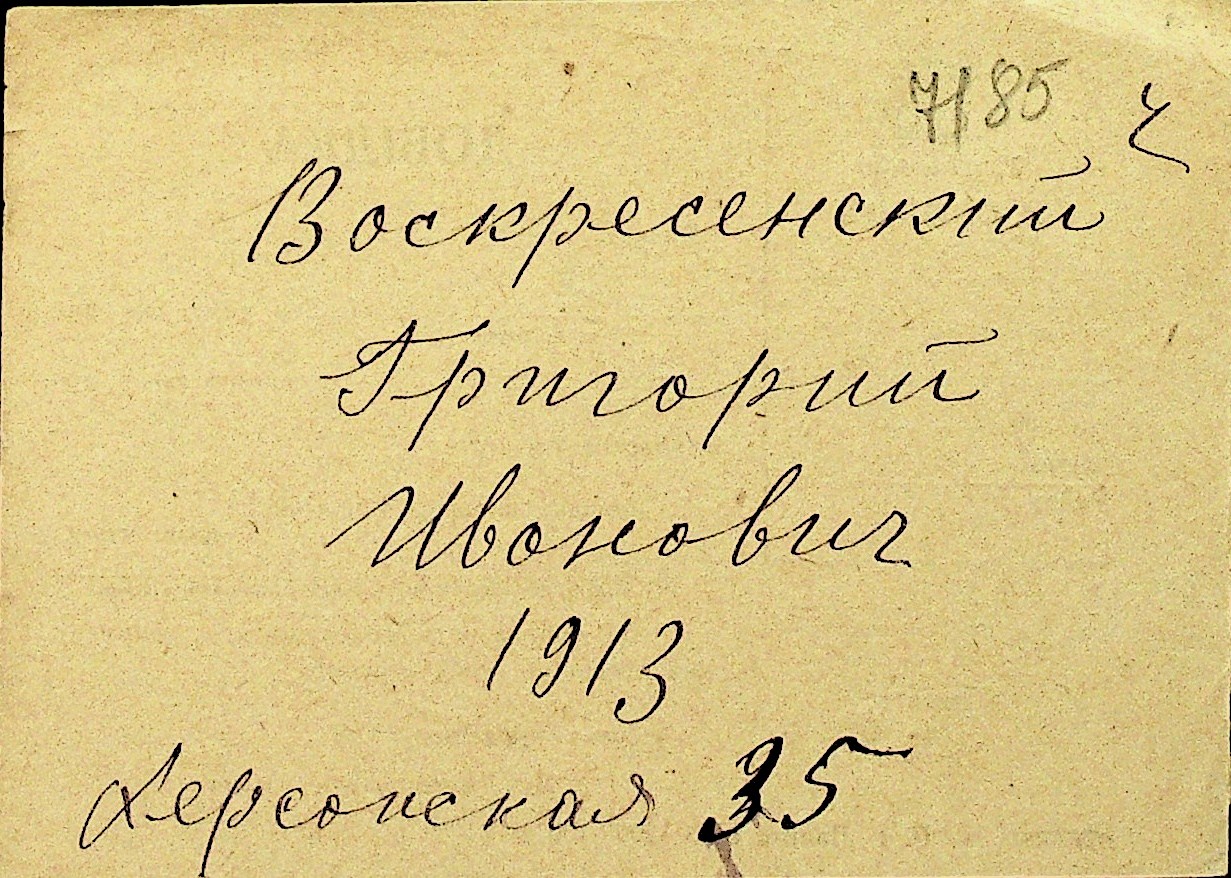 7185 ч
Воскресенский
Григорий
Иванович
1913
Херсонская 35